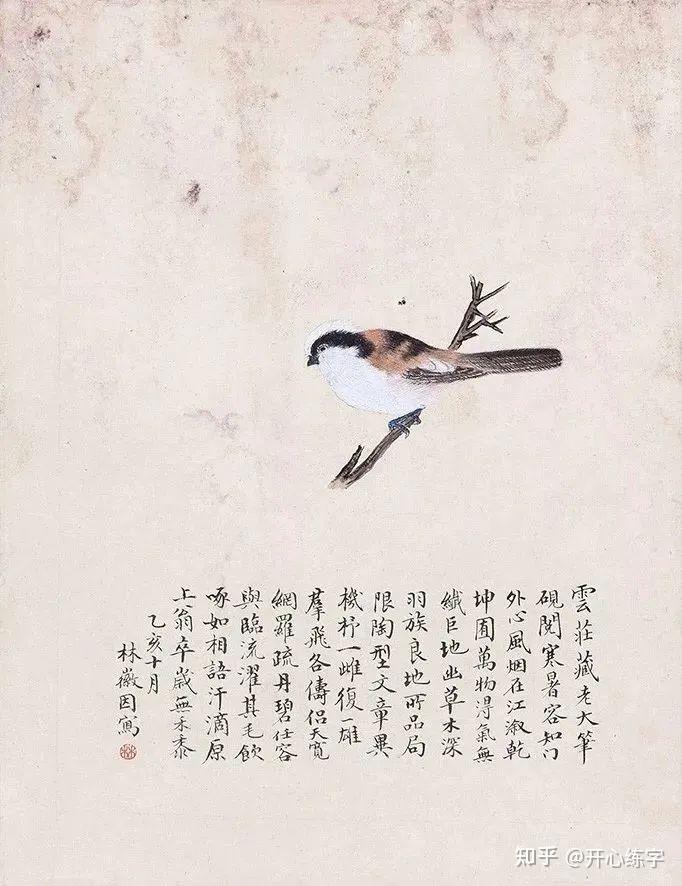 雲莊藏老大筆
硯閱寒暑容知門
外心風烟在江淑乾
坤囿萬物淂氣無
纖巨地幽草木深
羽族良地所品局
限陶型文章異
機杼一雌復一雄
羣飛各儔侶天寬
網羅疏丹碧任容
與臨流濯其毛飲
啄如相語汗滴原
上翁卒歲無禾黍
乙亥十月
林徽因寫
知乎 @开心练字